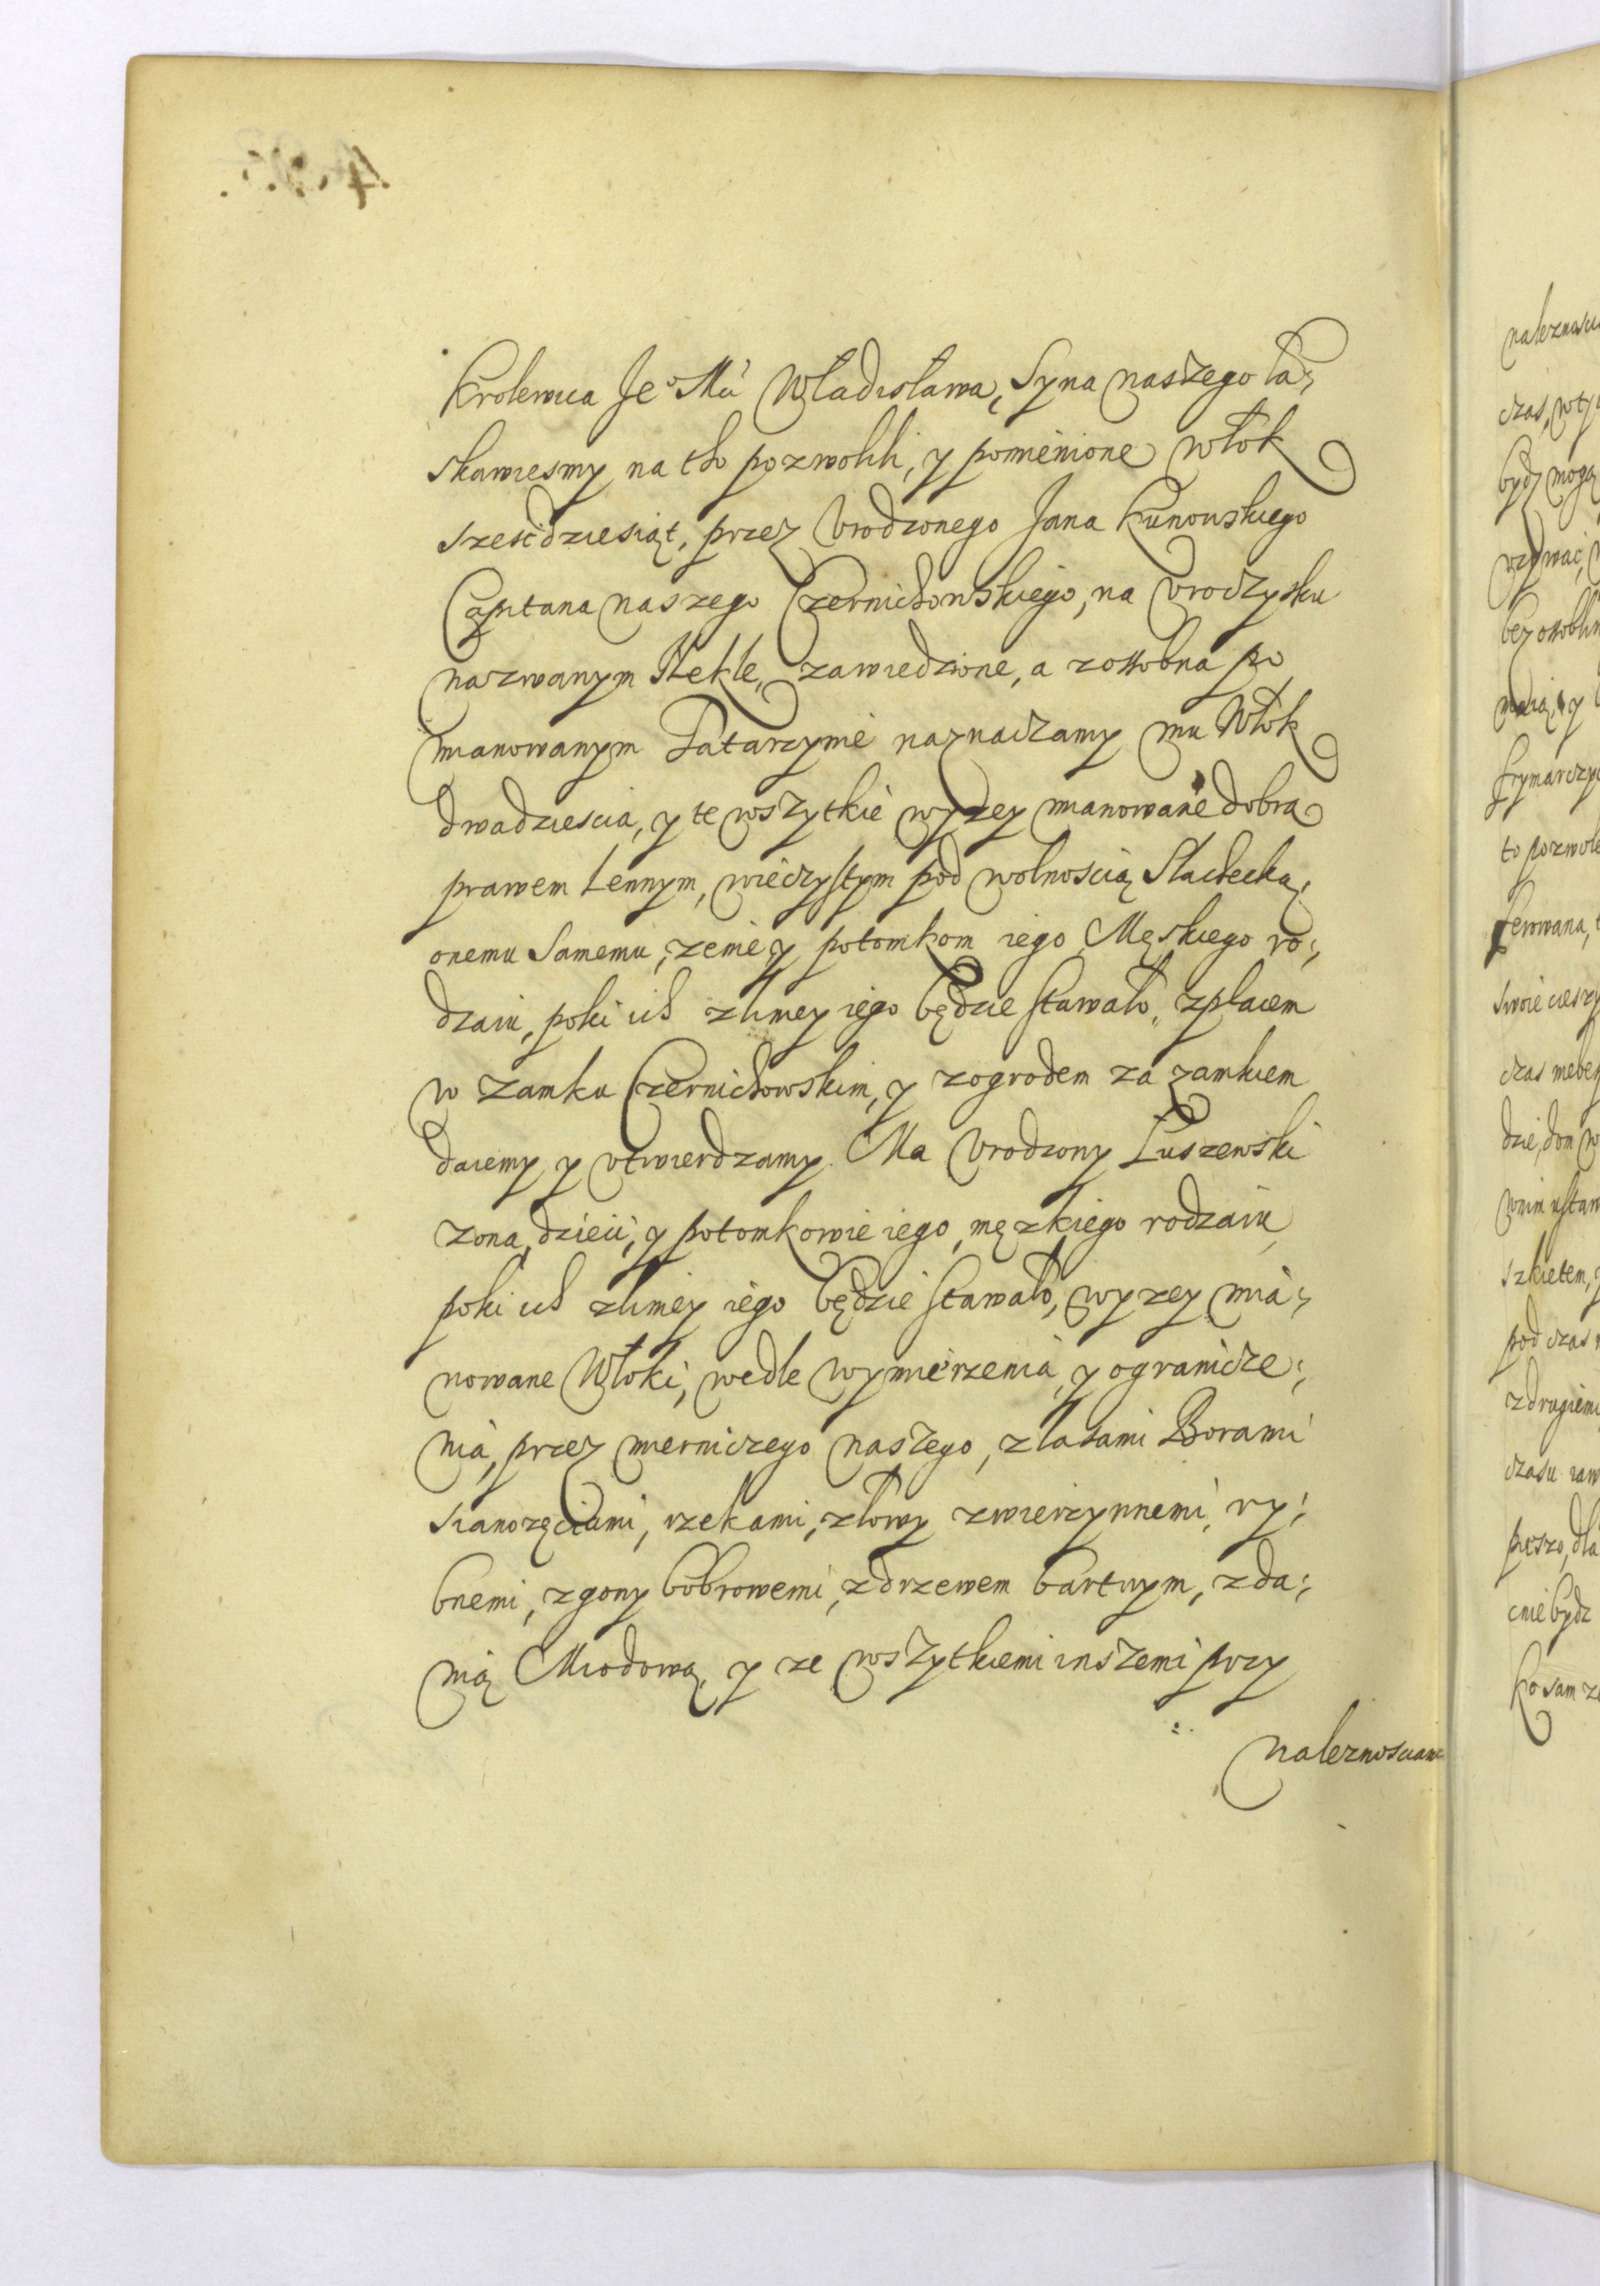 Krolewica Je° Mći Władisława, Syna naszego ła:
skawiesmy na tho pozwolili, y pomienione włok
szescdziesiąt, przez Urodzonego Jana Kunowskiego
Capitana naszego Czernichowskiego, na vroczysku
nazwanym zawiedzione, a zossobna po
mianowanym Tatarzynie naznaczamy mu Włok
dwadziescia, y te wszytkie wyzey mianowane dobra
prawem Lennym, wieczystym pod wolnoscią Slachecką,
onemu Samemu, zenie y potomkom iego Męskiego ro:
dzaiu, poki ich zliniey iego będzie stawało, zplacem
w Zamku Czernichowskim, y zogrodem za zamkiem
daiemy y vtwierdzamy. Ma Urodzony Łuszewski
zona, dzieci, y potomkowie iego, męzkiego rodzaiu,
poki ich zliniey iego będzie stawało, wyzey mia:
nowane Włoki, wedle wymierzenia, y ogranicze:
nia, przez mierniczego naszego, zlasami Borami
sianozęciami, rzekami, złowy zwierzynnemi, ry:
bnemi, zgony bobrowemi, zdrzewem bartnym, zda:
nią Miodową, y ze wszytkiemi inszemi przy
naleznosciami